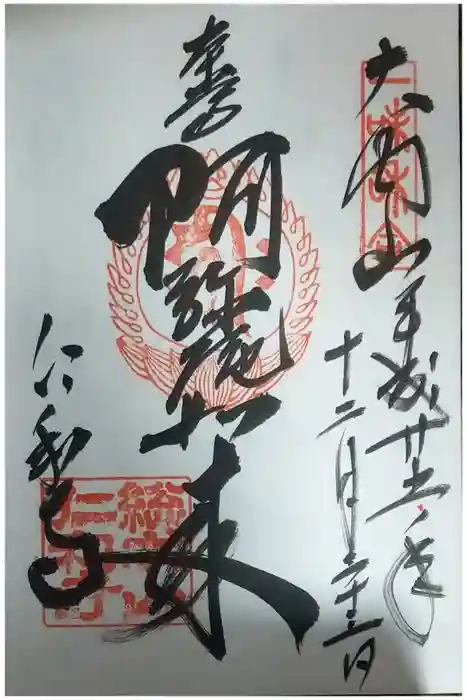 大内山
平成廿五年
十二月二十二日
奉拝
阿彌陀如来
仁和寺
總本山
仁和寺